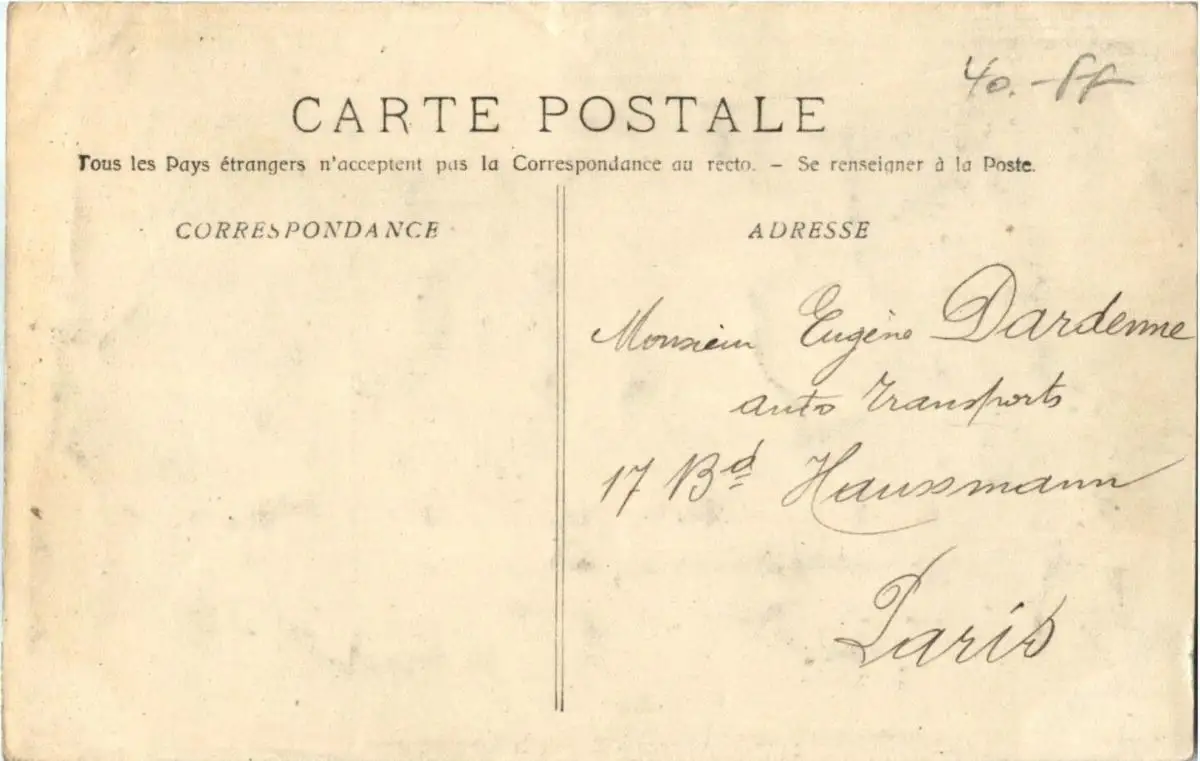 40.-ff
CARTE POSTALE
Tous les Pays étrangers n'acceptent pas la Correspondance au recto. — Se renseigner à la Poste.
CORRESPONDANCE
ADRESSE
Monsieur Eugène Dardenne
auto Transports
17 Bd Haussmann
Paris